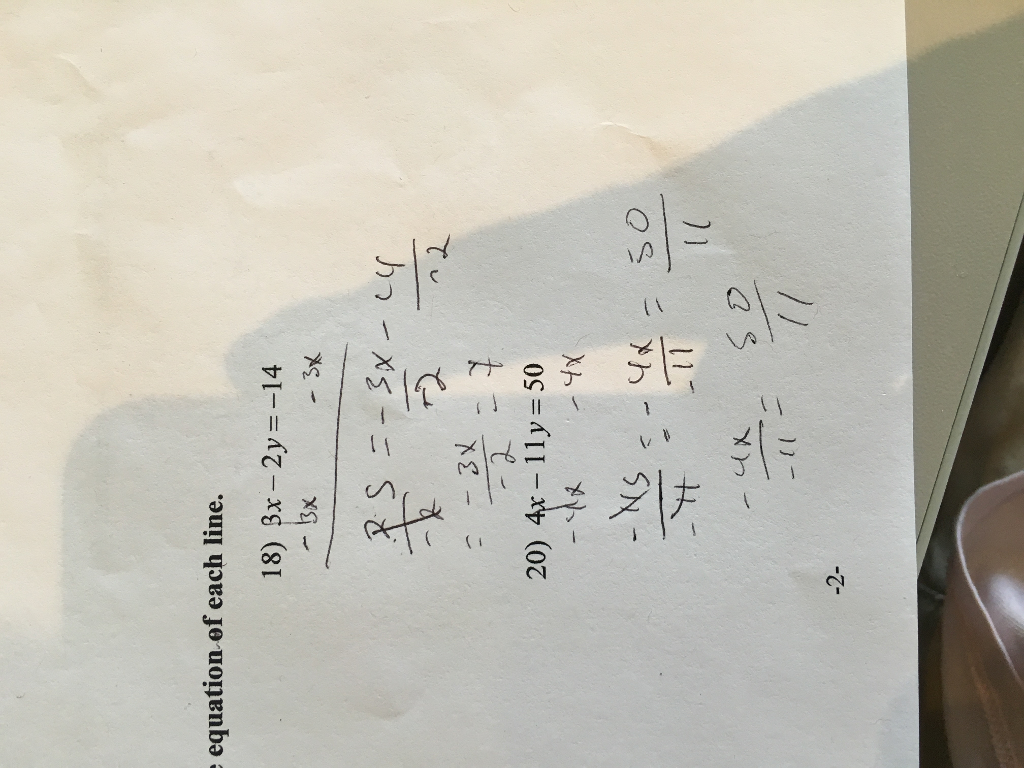 equation of each line.
18) 3x − 2y = −14
- 3x - 3x
= - 3x / -2 = 7
20) 4x − 11y = 50
- 4x - 4x
= - 4x / -11 = 50 / 11
- 4x / -11 = 50 / 11
-2-